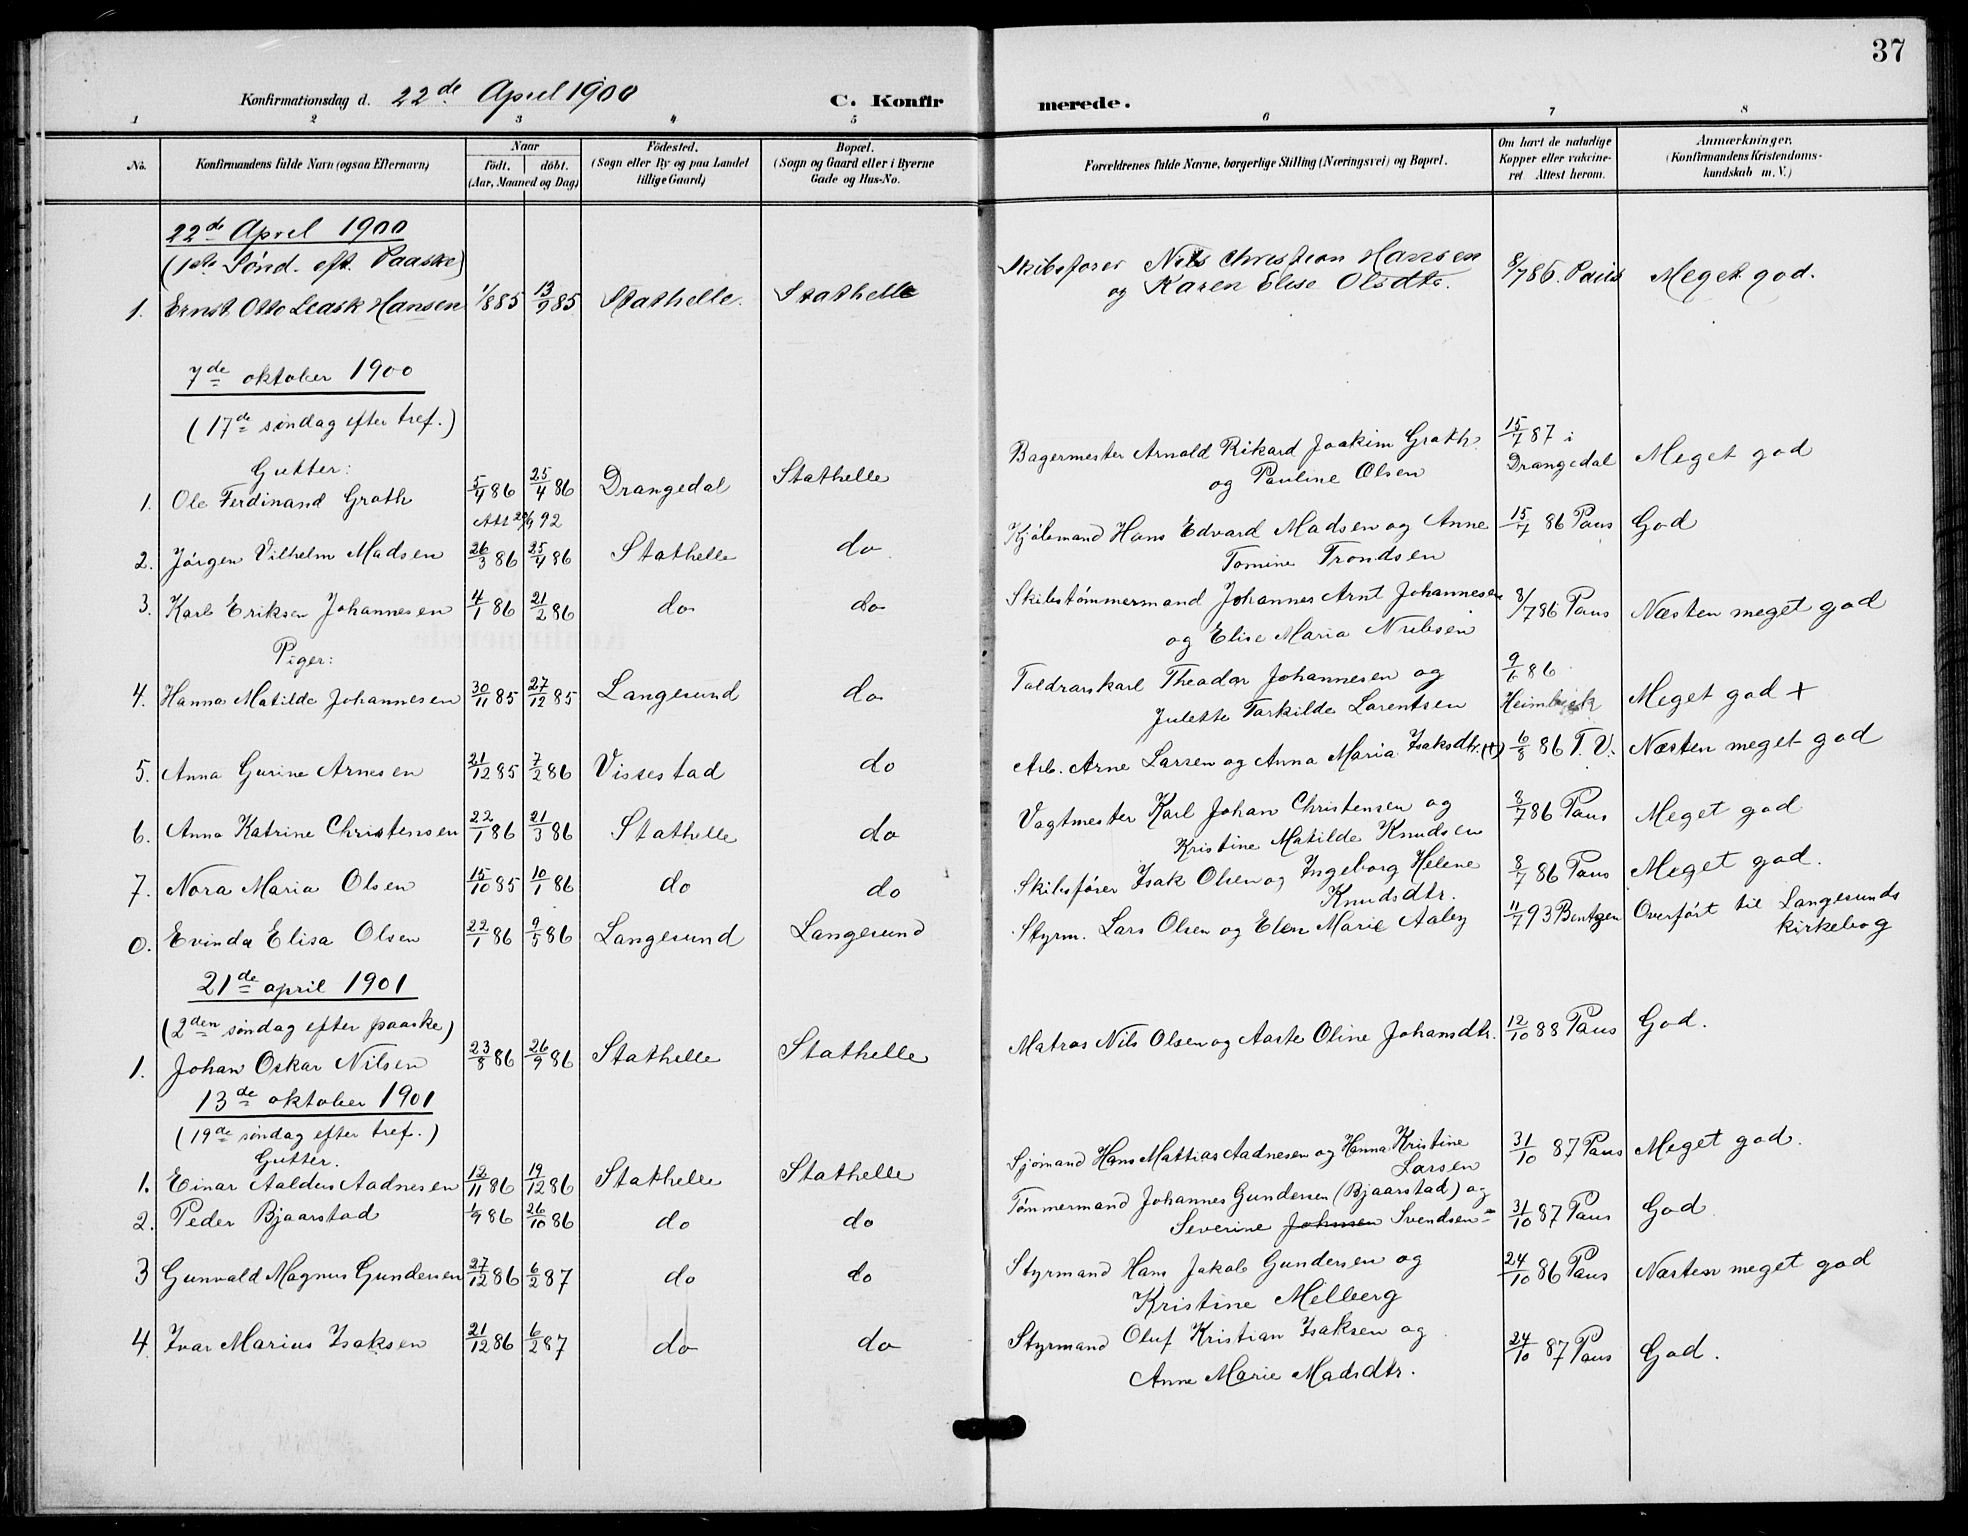 37
Konfirmationsdag d. 22de April 1900 C. Konfirmerede.
1 2 3 4 5 6 7 8
No. Konfirmandens fulde Navn (ogsaa Efternavn) Naar födt. döbt. (Aar, Maaned og Dag) Födested. (Sogn eller By og paa Landet tillige Gaard) Bopæl. (Sogn og Gaard eller i Byerne Gade og Hus-No. Forældrenes fulde Navne, borgerlige Stilling (Næringsvei) og Bopæl. Om havt de naturlige Kopper eller vakcineret. Attest herom. Anmærkninger. (Konfirmandens Kristendomskundskab m. V.)
22de April 1900
(1ste Sönd. eft. Paaske)
1. Ernst Otto Leask Hansen 1/8 85 13/9 85 Stathelle. Stathelle Skibsförer Nils Christian Hansen 8/7 86. Paus Meget god.
og Karen Elise Olsdtr.
7de oktober 1900
(17de søndag efter tref.)
Gutter:
1. Ole Ferdinand Groth 5/4 86 25/4 86 Drangedal Stathelle Bagermester Arnold Rikard Joakim Groth 15/7 87 i Meget god
og Pauline Olsen Drangedal
Att 20/9 92
2. Jørgen Vilhelm Madsen 26/3 86 25/4 86 Stathelle do Kjølemand Hans Edvard Madsen og Anne 15/7 86 Paus God
Tomine Trondsen
3. Karl Eriksen Johannesen 4/1 86 21/2 86 do do Skibstømmermand Johannes Arnt Johannesen 8/7 86 Paus Næsten meget god
og Elise Maria Nilsen
Piger:
4. Hanna Matilde Johannesen 30/11 85 27/12 85 Langesund do Toldrorskarl Theodor Johannesen og 9/6 86 Meget god +
Julette Torkilde Lorentsen
5. Anna Gurine Arnesen 21/12 85 7/2 86 Vissestad do Arb. Arne Larsen og Anna Maria Isaksdtr. (+) 6/8 86 T. V. Næsten meget god
6. Anna Katrine Christensen 22/1 86 21/3 86 Stathelle do Vagtmester Karl Johan Christensen og 8/7 86 Paus Meget god
Kristine Matilde Knudsen
7. Nora Maria Olsen 15/10 85 10/1 86 do do Skibsfører Isak Olsen og Ingeborg Helene 8/7 86 Paus Meget god.
Knudsdtr.
0. Evinda Elisa Olsen 22/1 86 9/5 86 Langesund Langesund Styrm. Lars Olsen og Elen Marie Aaby 11/7 93 Bentzen Overført til Langesunds
kirkebog
21de april 1901
(2den søndag efter paaske)
1. Johan Oskar Nilsen 23/8 86 26/9 86 Stathelle Stathelle Matros Nils Olsen og Aaste Oline Johansdtr. 12/10 88 Paus God.
13de oktober 1901
(19de søndag efter tref.)
Gutter.
1. Einar Aalders Aadnesen 12/11 86 19/12 86 Stathelle Stathelle Sjømand Hans Mattias Aadnesen og Hanna Kristine 31/10 87 Paus Meget god.
Larsen
2. Peder Bjaarstad 1/9 86 26/10 86 do do Tømmermand Johannes Gundersen (Bjaarstad) og 31/10 87 Paus God
Severine Johnsen Svendsen
3 Gunvald Magnus Gundersen 27/12 86 6/2 87 do do Styrmand Hans Jakob Gundersen og 24/10 86 Paus Næsten meget god
Kristine Melberg
4. Ivar Marius Isaksen 21/12 86 6/2 87 do do Styrmand Oluf Kristian Isaksen og 24/10 87 Paus God.
Anne Marie Madsdtr.